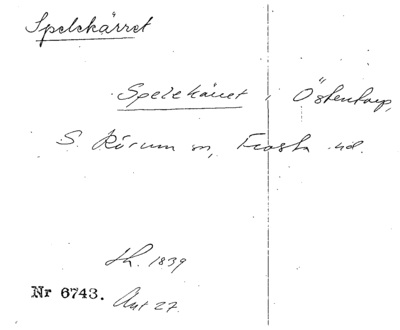 Spelekärret
Spelekärret, Östentorp,
S. Rörum sn, Frosta hd.
1839
Nr 6743. Ant 27.